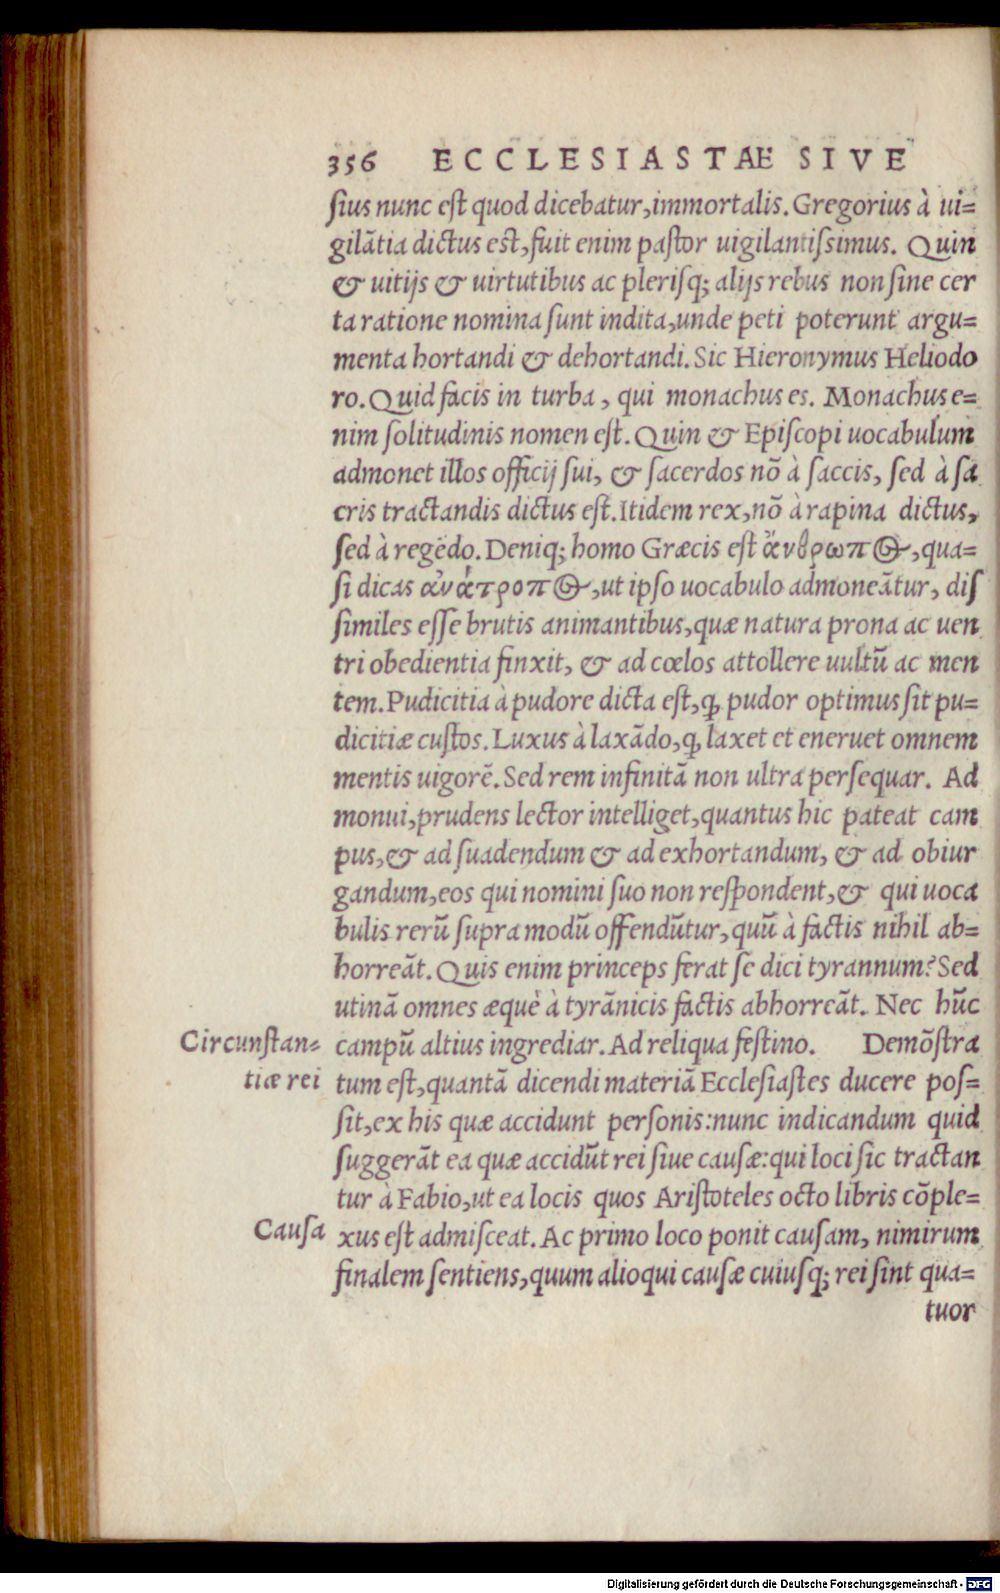 356 ECCLESIASTAE SIVE
ſius nunc eſt quod dicebatur,immortalis. Gregorius à ui=
gilãtia dictus eſt,fuit enim paſtor uigilantiſsimus. Quin
& uitijs & uirtutibus ac pleriſq; alijs rebus non ſine cer
ta ratione nomina ſunt indita,unde peti poterunt argu=
menta hortandi & dehortandi. Sic Hieronymus Heliodo
ro. Quid facis in turba, qui monachus es. Monachus e=
nim ſolitudinis nomen eſt. Quin & Epiſcopi uocabulum
admonet illos officij ſui, & ſacerdos nõ à ſaccis, ſed à ſa
cris tractandis dictus eſt. Itidem rex,nõ à rapina dictus,
ſed à regẽdo. Deniq; homo Græcis eſt ἄνθρωπος,qua=
ſi dicas ἀνάτροπος,ut ipſo uocabulo admoneãtur, diſ
ſimiles eſſe brutis animantibus,quæ natura prona ac uen
tri obedientia finxit, & ad cœlos attollere uultũ ac men
tem. Pudicitia à pudore dicta eſt,ꝙ pudor optimus ſit pu=
dicitiæ cuſtos. Luxus à laxãdo,ꝙ laxet et eneruet omnem
mentis uigorẽ. Sed rem infinitã non ultra perſequar. Ad
monui,prudens lector intelliget,quantus hic pateat cam
pus,& ad ſuadendum & ad exhortandum, & ad obiur
gandum,eos qui nomini ſuo non reſpondent,& qui uoca
bulis rerũ ſupra modũ offendũtur,quũ à factis nihil ab=
horreãt. Quis enim princeps ferat ſe dici tyrannum? Sed
utinã omnes æquè à tyrãnicis factis abhorreãt. Nec hũc
Circunſtan=
tiæ rei
campũ altius ingrediar. Ad reliqua feſtino. Demõſtra
tum eſt,quantã dicendi materiã Eccleſiaſtes ducere poſ=
ſit,ex his quæ accidunt perſonis:nunc indicandum quid
ſuggerãt ea quæ accidũt rei ſiue cauſæ:qui loci ſic tractan
tur à Fabio,ut ea locis quos Ariſtoteles octo libris cõple=
Cauſa
xus eſt admiſceat. Ac primo loco ponit cauſam, nimirum
finalem ſentiens,quum alioqui cauſæ cuiuſq; rei ſint qua=
tuor
Digitalisierung gefördert durch die Deutsche Forschungsgemeinschaft - DFG